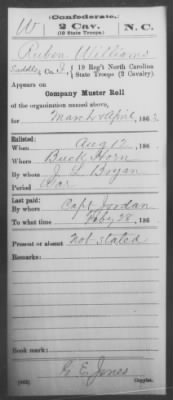 (Confederate.)
W 2 Cav. N. C.
(19 State Troops)
Ruben Williams
Saddler, Co. 19 Reg't North Carolina
State Troops (2 Cavalry)
Appears on
Company Muster Roll
of the organization named above,
for Mar & April, 186
Enlisted:
When Aug 12, 186
Where Buck Horn
By whom J. L. Bryan
Period War
Last paid:
By whom Capt Jordan
To what time Feby 28, 186
Present or absent Not Stated
Remarks:
Book mark:
G. E. Jones
Copyist.